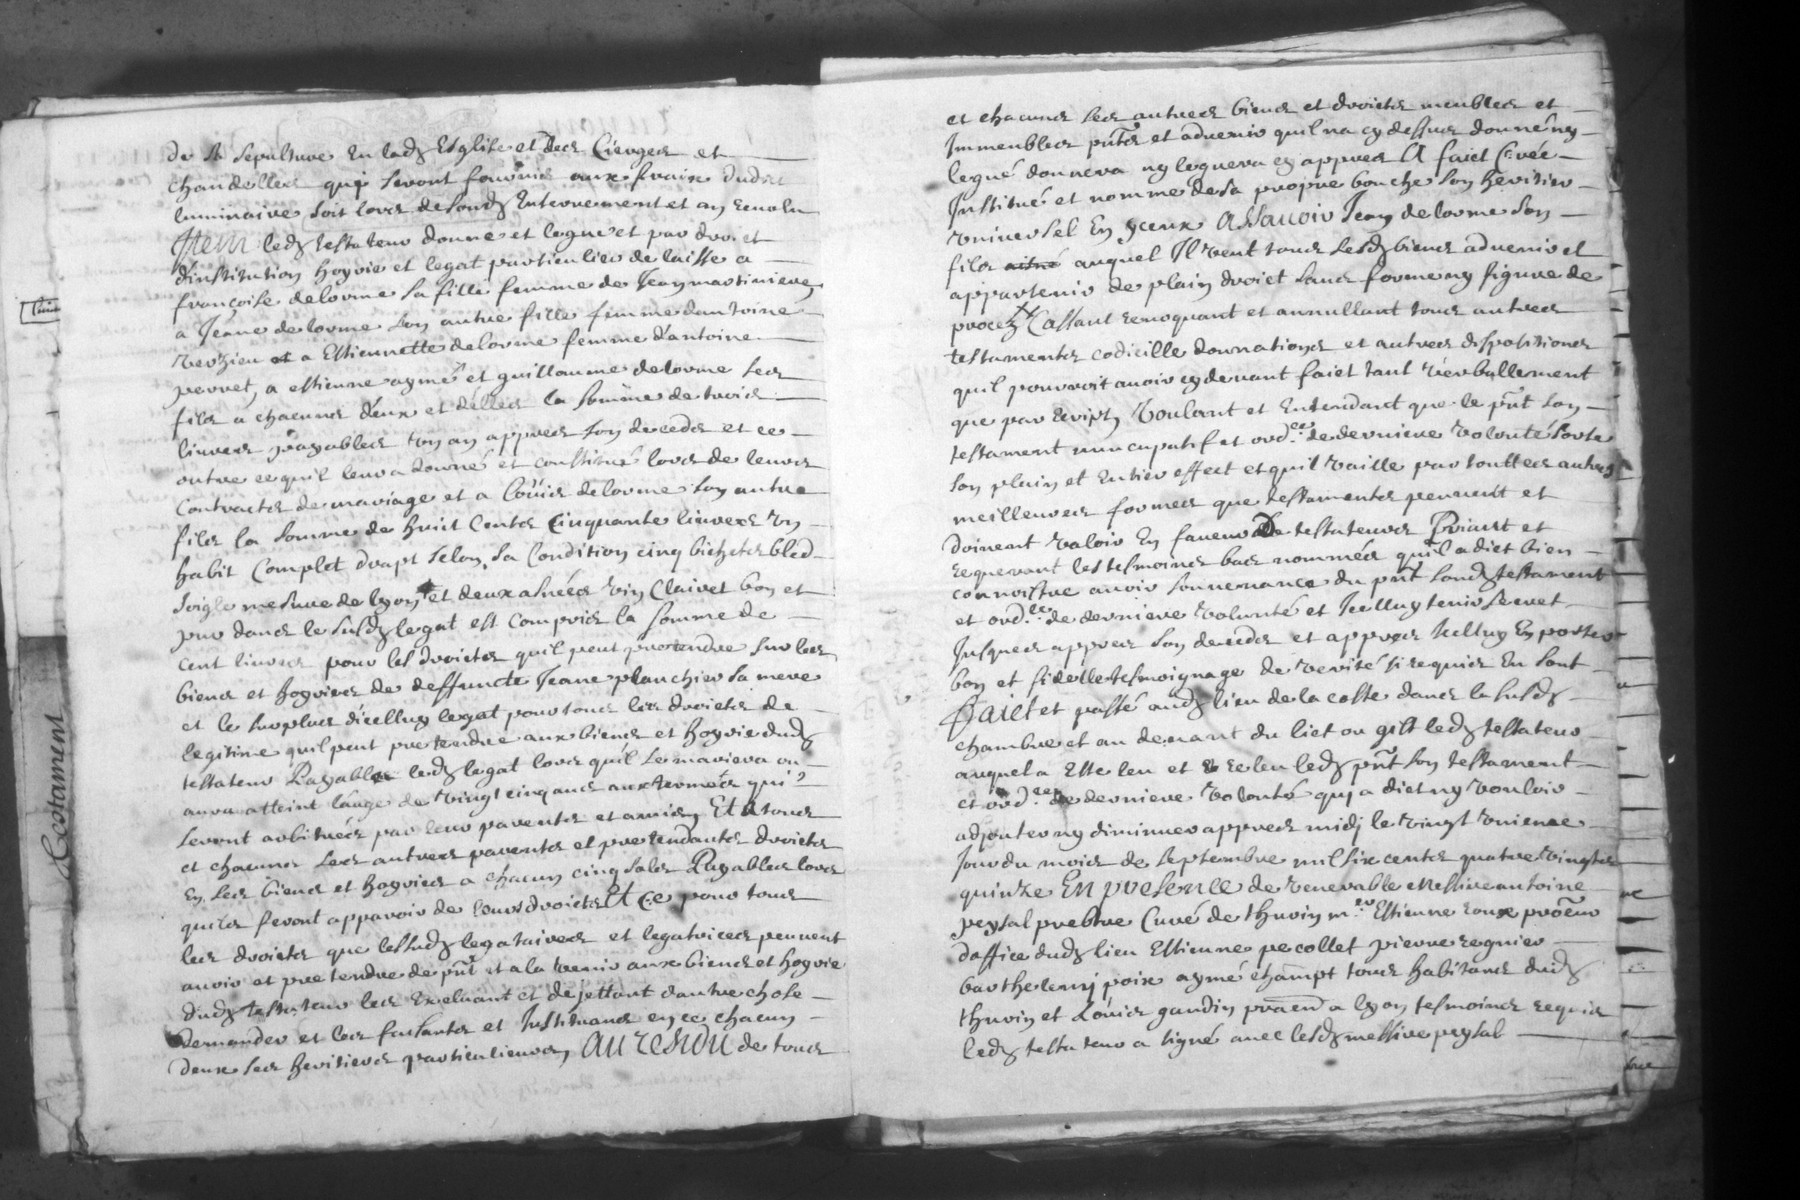 de sa sepulture en lad. Esglise et des Cierges et
chandelles qui seront fournis aux fraix dudit
luminaire soit lors de sond. Enterrement et an revolu
Item led. testateur donne et legue et par droict
d'institution hoyrie et legat particulier delaisse a
françoise delorme sa fille femme de Jean
a Jeane delorme son autre fille femme dantoine
Verzieu et a Estiennette delorme femme d'antoine
perret, a estienne aymé et guillaume delorme ses
fils a chacuns deux et d'elles la somme de trois
livres payables un an appres son deceds et ce
outre ce qu'il leur a donné et constitué lors de leurs
Contracts de mariage et a Loüis delorme son autre
fils la somme de huit Cents Cinquante livres un
habit Complet drapt selon sa Condition cinq bichets bled
soigle mesure de lyon et deux asnées vin Clairet bon et
pur dans le susd. legat est Compris la somme de
cent livres pour les droicts quil peut pretendre sur les
biens et hoyries de deffuncte Jeane planchier sa mere
et le surplus d'icelluy legat pour tous les droicts de
legitime quil peut pretendre aux biens et hoyrie dud.
testateur Payable led. legat lors quíl se mariera ou
aura atteint l'auge de vingt cinq ans aux termes qui
seront arbitrés par leur parents et amis, Et a tous
et chacuns ses autres parents et pretendants droicts
En ses biens et hoyries a chacun cinq sols Payables lors
quils feront apparoir de leurs droicts Et Ce pour tous
les droicts que lessusd. legataires et legatrices peuvent
avoir et pretendre de pnt et a la venir aux biens et hoyrie
dud. testateur les Excluant et dejettant dautre chose
demander et les faisants et Instituans en ce chacun
deux ses heritiers particulieurs, Au residu de tous
et chacuns ses autres biens et droicts meubles et
Immeubles pnts et advenir quil na cy dessus donné ny
legué donnera ny leguera cy appres A faict Créé
Institué et nomme de sa propre bouche son heritier
universel En yceux Assavoir Jean delorme son
fils aisné auquel Il veut tous lesd. biens advenir et
appartenir de plain droict sans forme ny figure de
procez Cassant revoquant et annullant tous autres
testaments codicille donnations et autres dispositions
quil pourroit avoir cy devant faict tant verballement
que par Escript, Voulant et Entendant que le pnt son
testament nuncupatif et ord.ce de derniere volonté sorte
son plein et Entier effect et quil vaille par touttes autres
meilleures formes que testaments peuvent et
doivent valoir En faveur De testateurs Priant et
requerant les tesmoins bas nommés qu'il a dict bien
connoistre avoir souvenance du pnt sond. testament
et ord.ce de derniere volunté et Icelluy tenir secret
Jusques appres son deceds et appres Icelluy En porter
bon et fidelle tesmoignage de verité si requis En sont
Faict et passé aud. lieu de la coste dans la susd.
chambre et au devant du lict ou gist led. testateur
auquel a Este leu et releu led. pnt son testament
et ord.ce de derniere volonté qui a dict ny vouloir
adjouter ny diminuer appres midj le vingt unieme
Jour du mois de septembre mil six cents quatre vingts
quinze En presence de venerable Messire antoine
peysal prebtre Curé de thurin m.re Estienne roux
doffice dud. lieu Estienne pecollet pierre regnier
barthelemj poix aymé champt tous habitans dud.
thurin et Loüis gaudin a lyon tesmoins requis
led. testateur a signé avec lesd. messire peysal
Testament